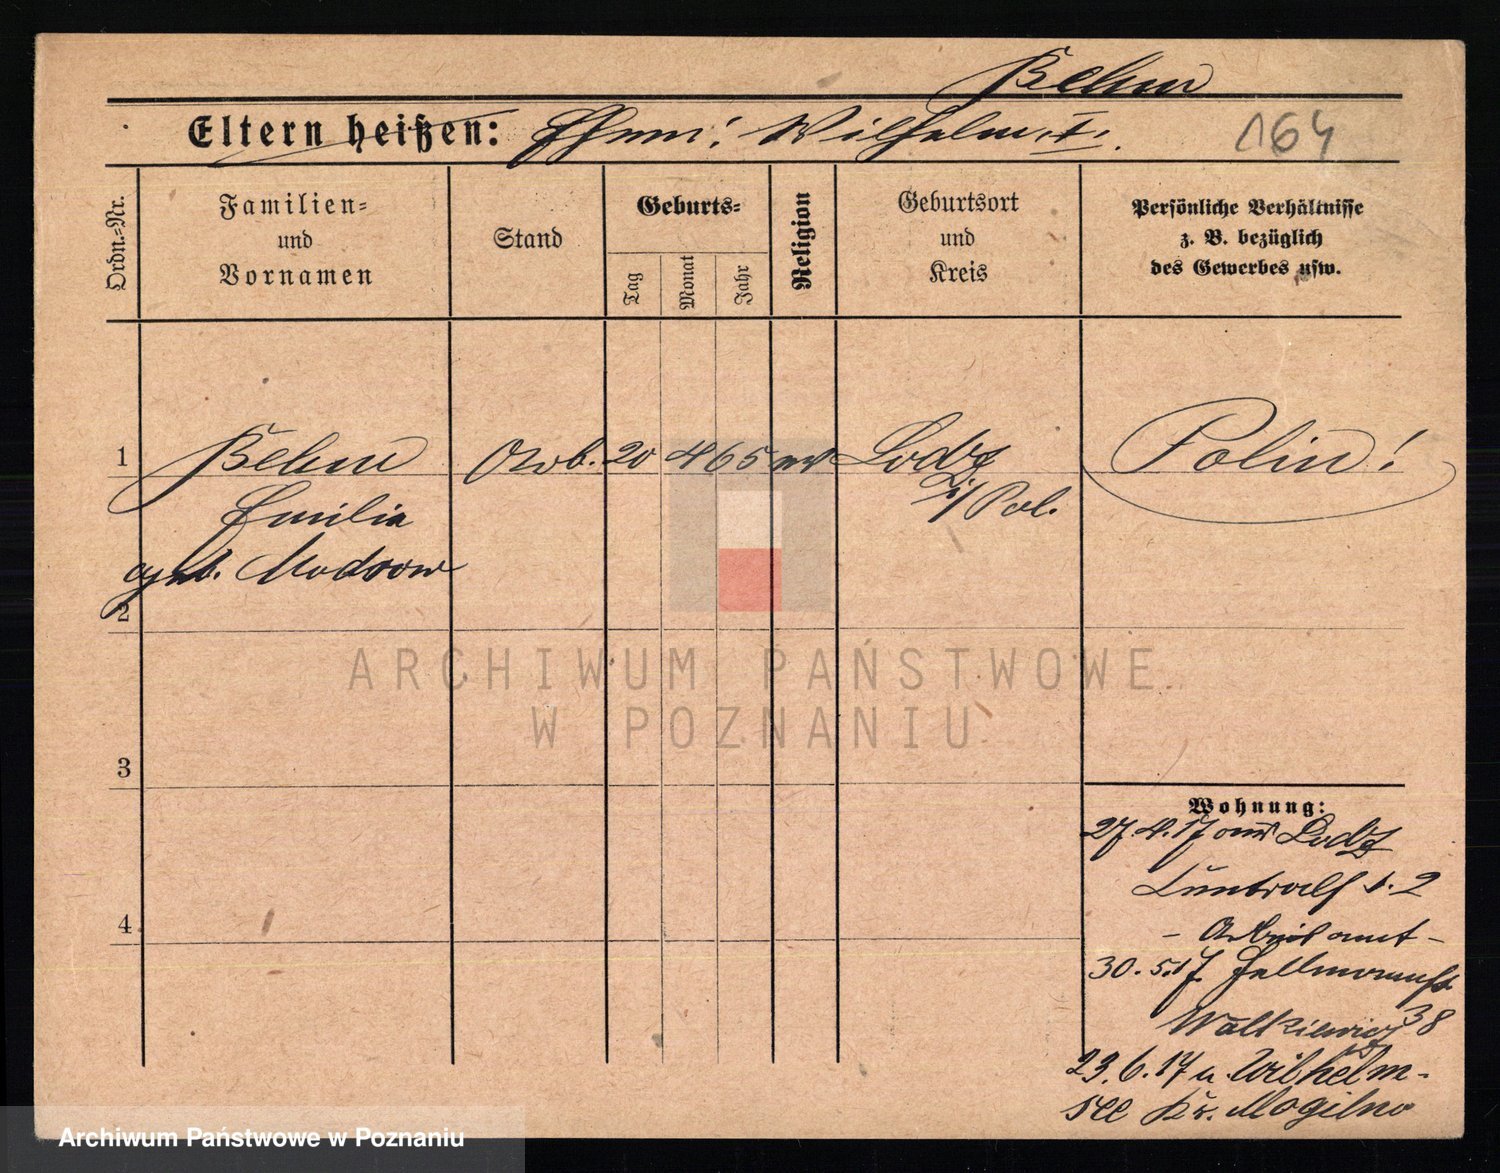 Behm
Eltern heißen: Ehem: Wilhelm I. 164
Ordn.-Nr.
Familien-
und
Vornamen
Stand
Geburts-
Tag
Monat
Jahr
Religion
Geburtsort
und
Kreis
Persönliche Verhältnisse
z. B. bezüglich
des Gewerbes usw.
1 Behm Arb. 20 4 65 ev Lodz Polin!
Emilia i/Pol.
geb. Modrow
2
3
4
ARCHIWUM PAŃSTWOWE
W POZNANIU
Wohnung:
27.4.17 aus Lodz
- Arbeitsamt -
30.5.17
Walkiewicz 38
23.6.17 n. Wilhelm-
see Kr. Mogilno
Archiwum Państwowe w Poznaniu